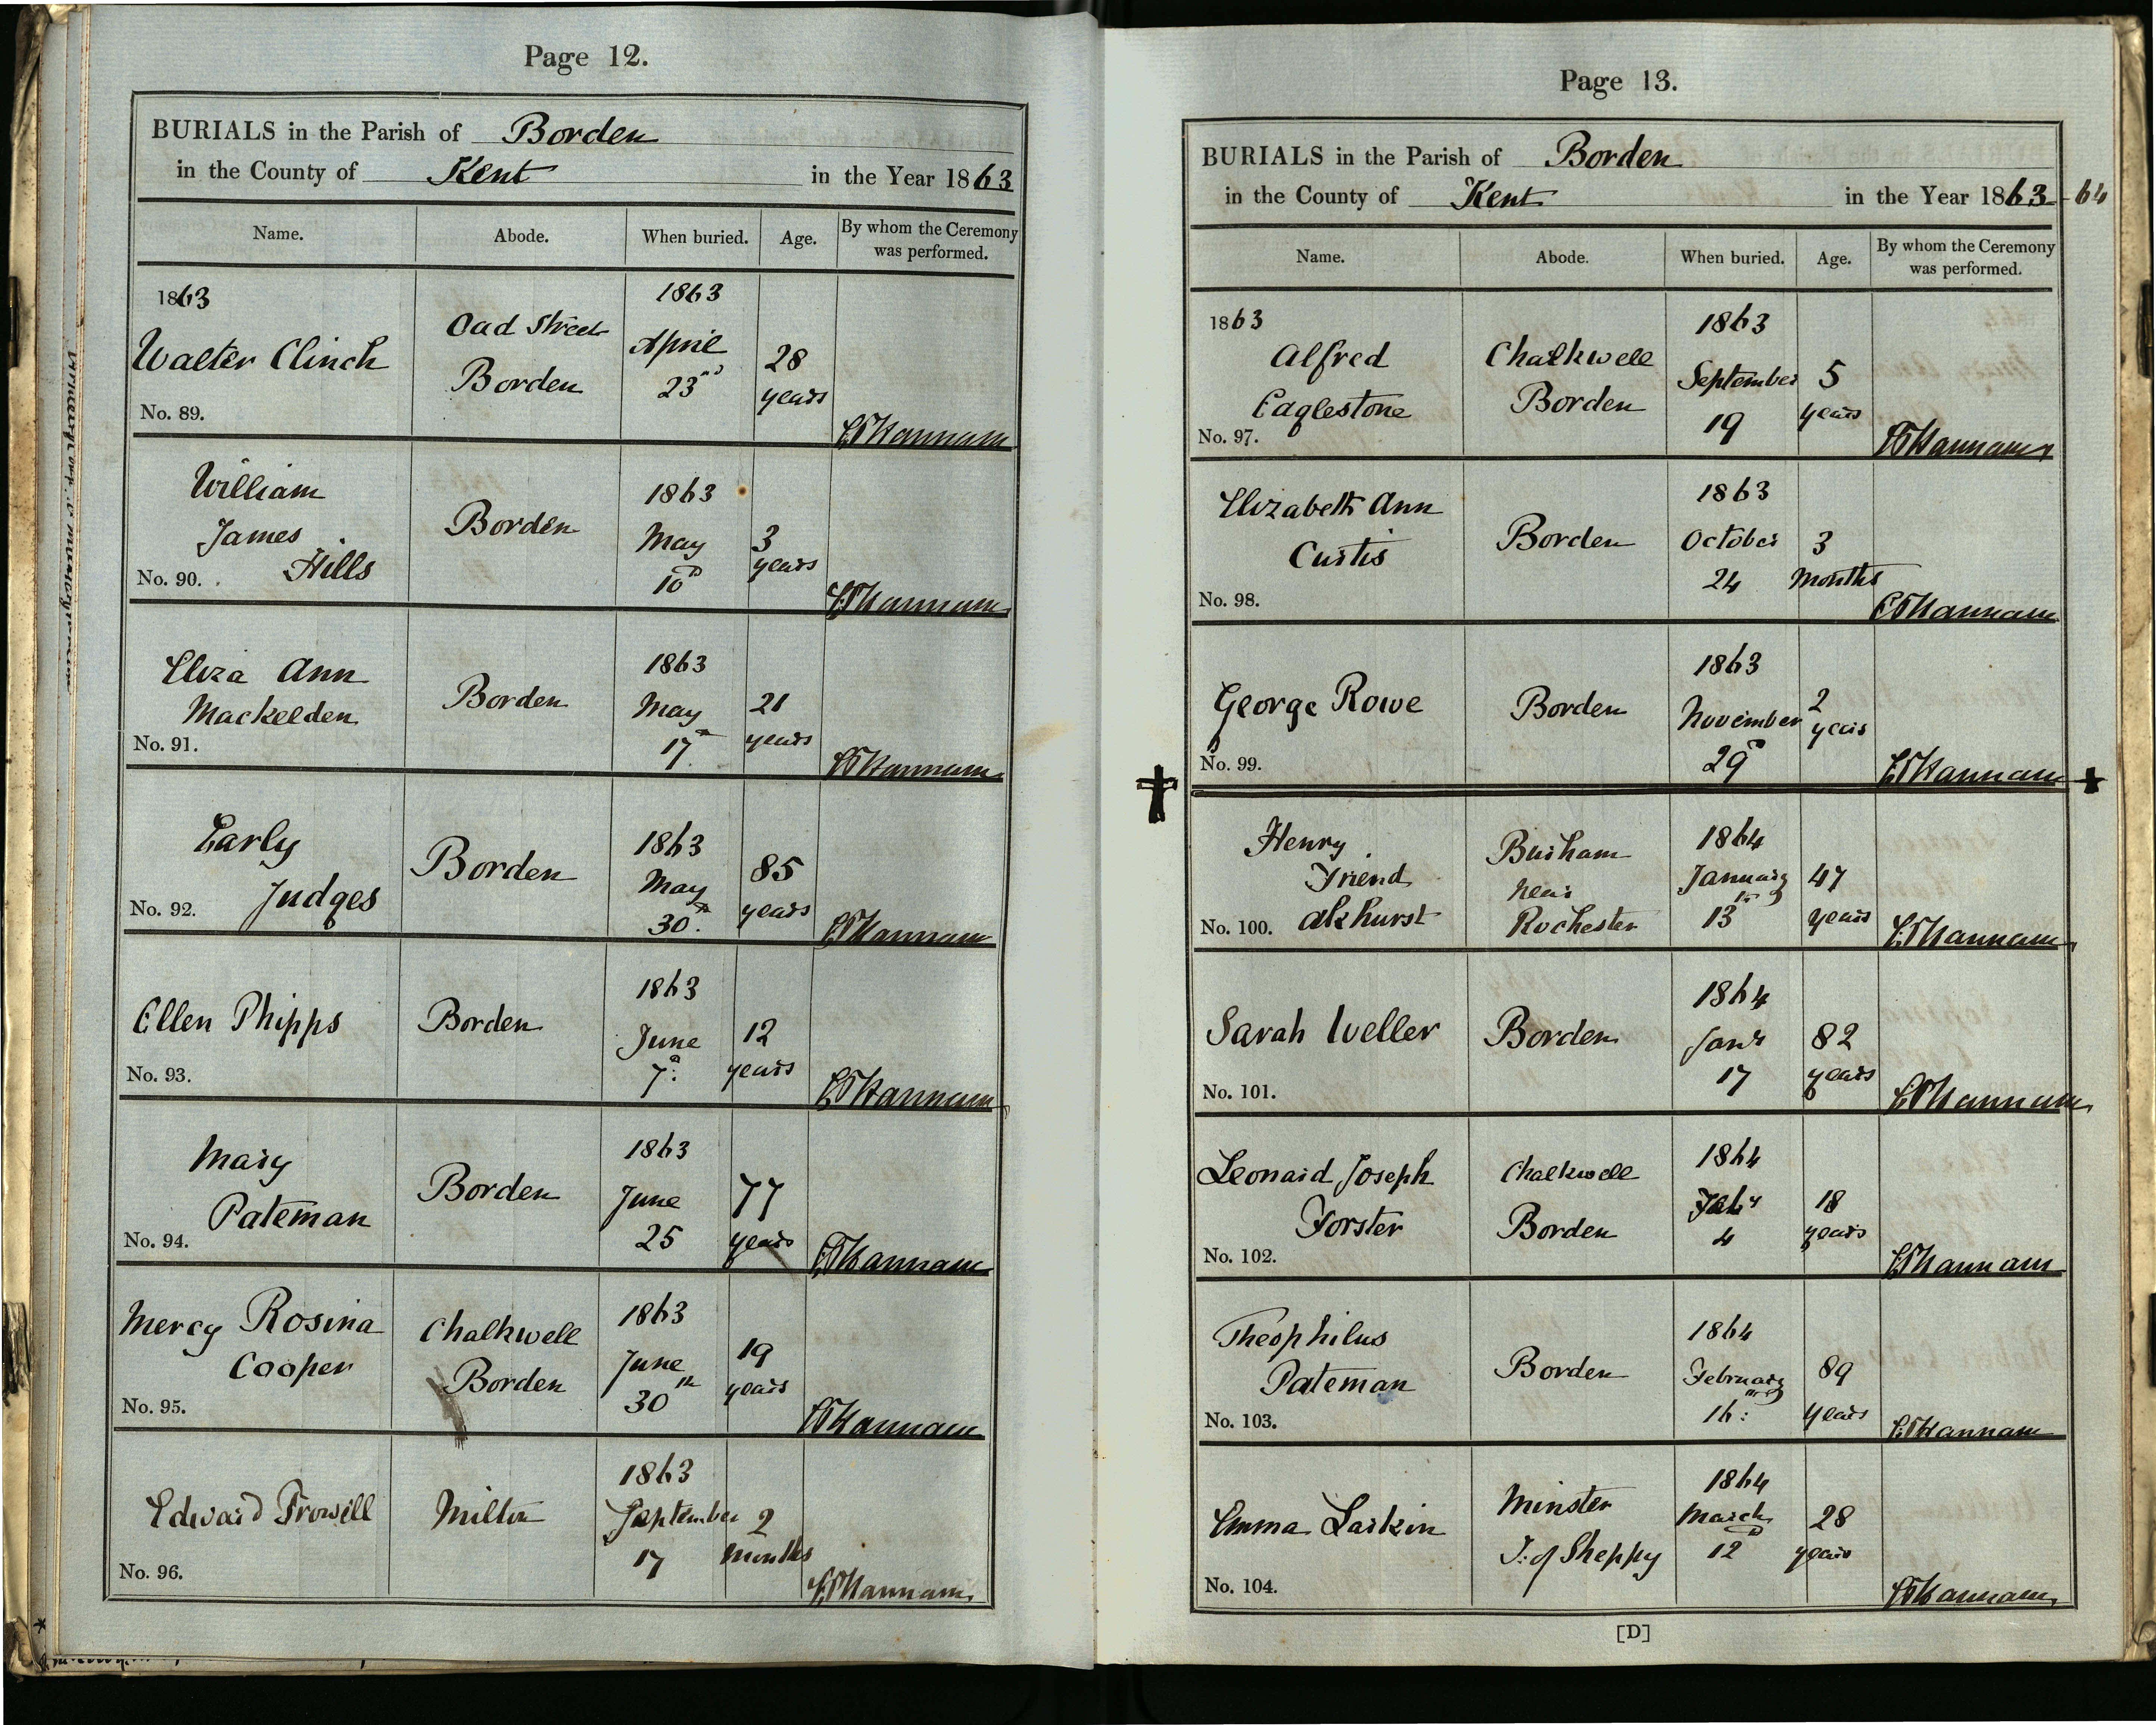 Page 12.
BURIALS in the Parish of Borden
in the County of Kent in the Year 1863
Name. Abode. When buried. Age. By whom the Ceremony was performed.
1863
Walter Clinch
No. 89.
Oad Street
Borden
1863
April
23rd
28
years
E Hannam
William
James
Hills
No. 90.
Borden
1863
May
10th
3
years
E Hannam
Eliza Ann
Mackelden
No. 91.
Borden
1863
May
17th
21
years
E Hannam
Early
Judges
No. 92.
Borden
1863
May
30th
85
years
E Hannam
Ellen Phipps
No. 93.
Borden
1863
June
7th
12
years
E Hannam
Mary
Pateman
No. 94.
Borden
1863
June
25
77
years
E Hannam
Mercy Rosina
Cooper
No. 95.
Chalkwell
Borden
1863
June
30th
19
years
E Hannam
Edward Frowill
No. 96.
Milton
1863
September
17
2
months
E Hannam
Page 13.
BURIALS in the Parish of Borden
in the County of Kent in the Year 1863-64
Name. Abode. When buried. Age. By whom the Ceremony was performed.
1863
Alfred
Eaglestone
No. 97.
Chalkwell
Borden
1863
September
19
5
years
E Hannam
Elizabeth Ann
Curtis
No. 98.
Borden
1863
October
24
3
months
E Hannam
George Rowe
No. 99.
Borden
1863
November
29th
2
years
E Hannam
Henry
Friend
Akhurst
No. 100.
Burham
near
Rochester
1864
January
13th
47
years
E Hannam
Sarah Weller
No. 101.
Borden
1864
Jany
17
82
years
E Hannam
Leonard Joseph
Forster
No. 102.
Chalkwell
Borden
1864
Feby
4
18
years
E Hannam
Theophilus
Pateman
No. 103.
Borden
1864
February
16th
89
years
E Hannam
Emma Larkin
No. 104.
Minster
I: of Sheppy
1864
March
12th
28
years
E Hannam
[D]